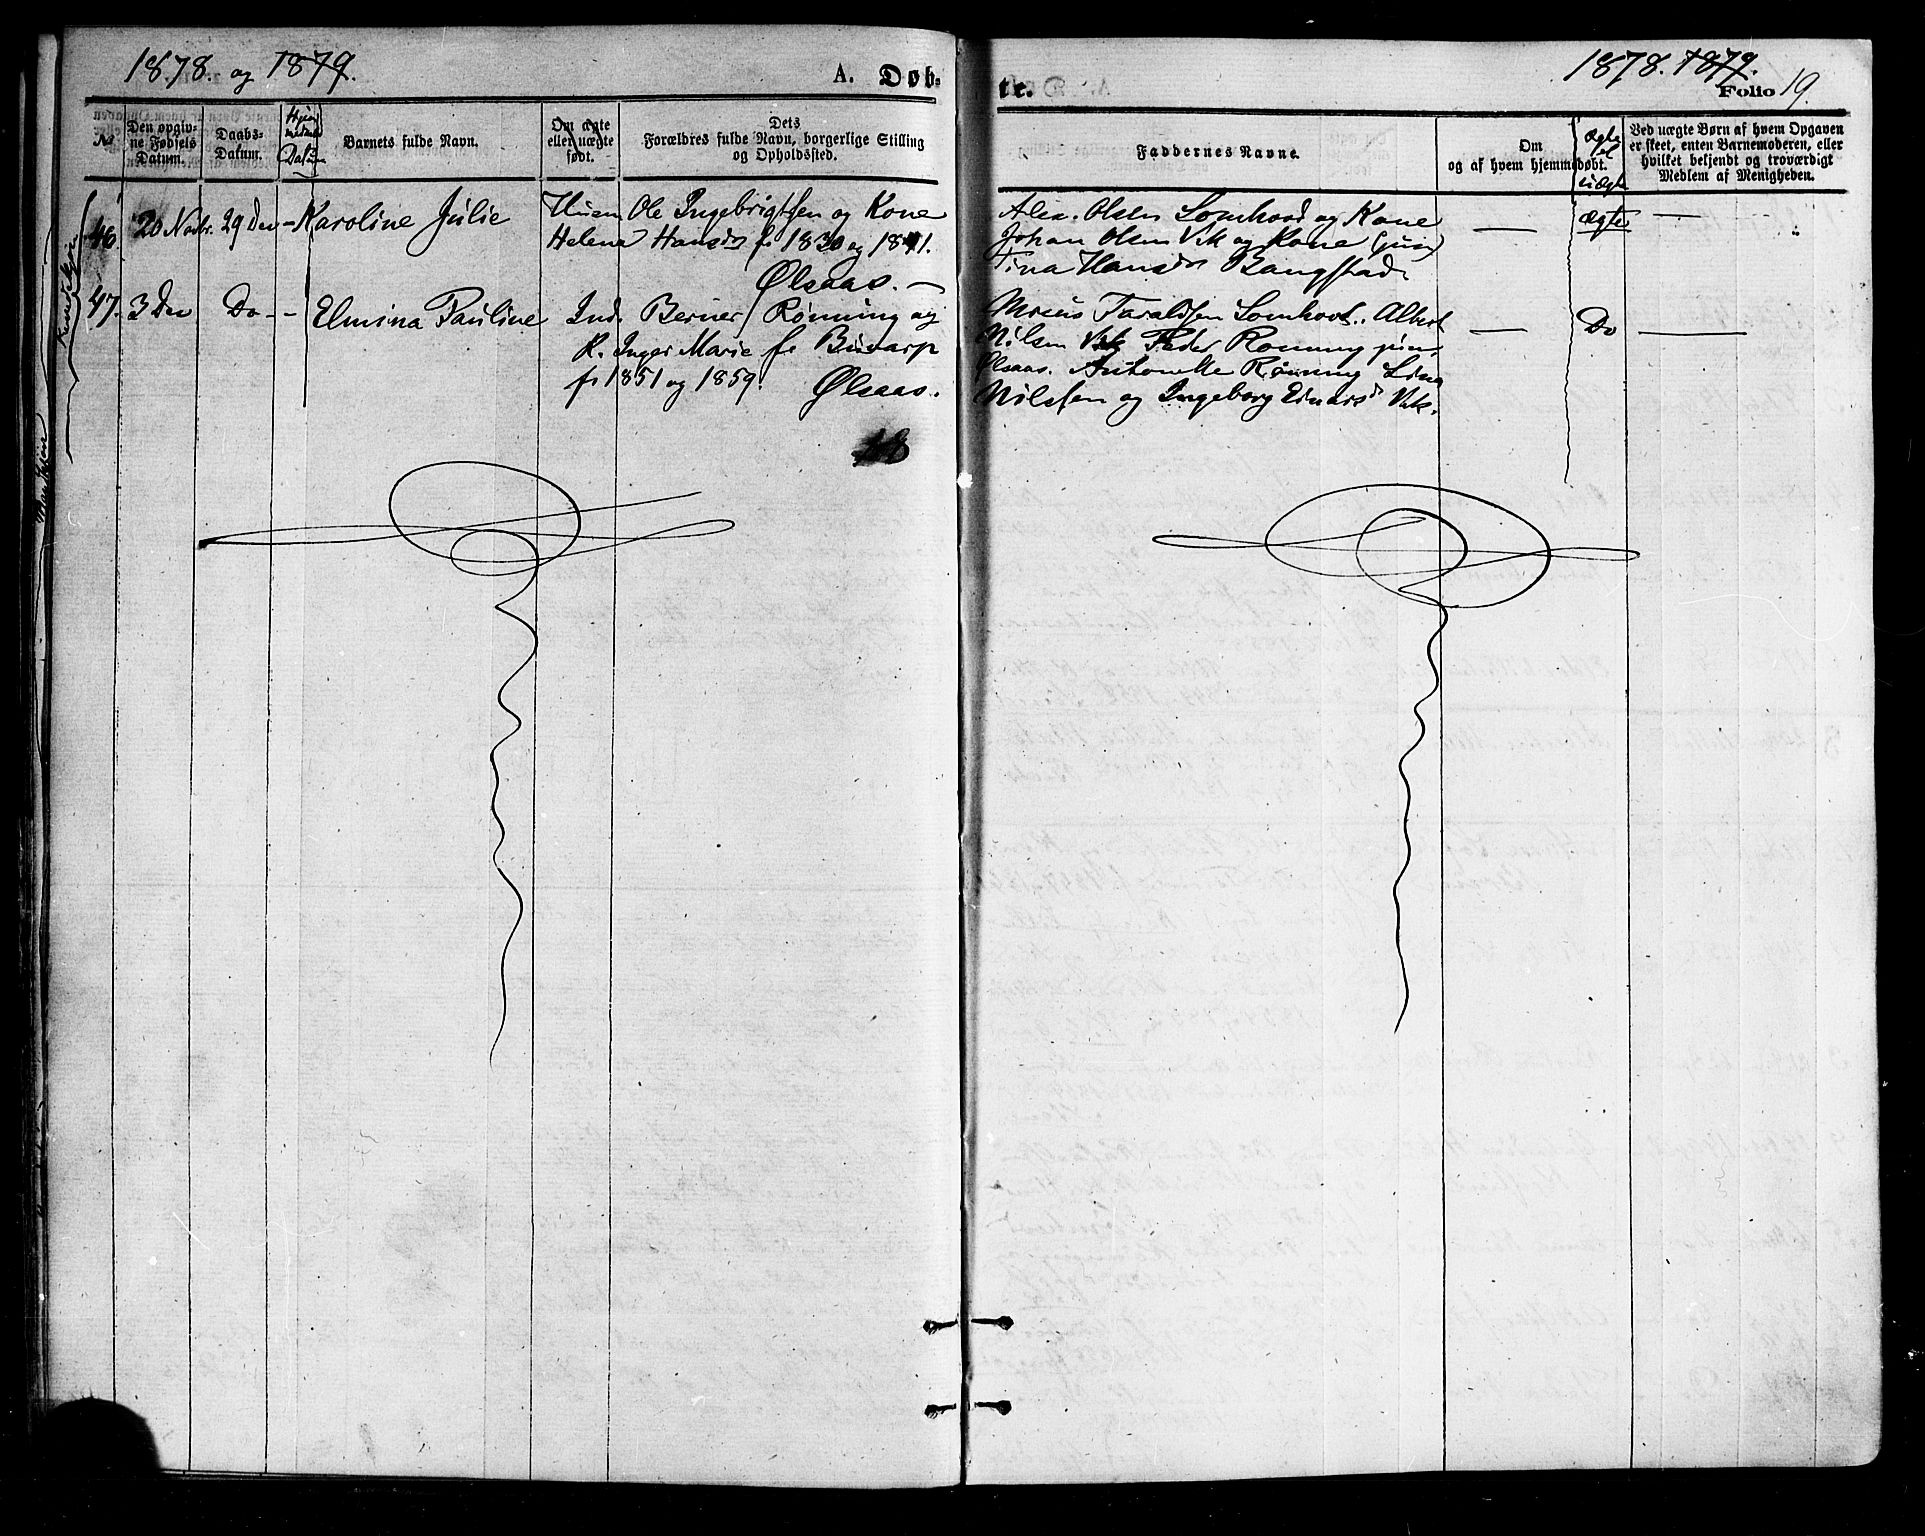 1878. og 1879.
A. Døb-
№
Den opgiv-
ne Fødsels
Datum.
Daabs-
Datum.
Datum
Barnets fulde Navn.
Om ægte
eller uægte
født.
Dets
Forældres fulde Navn, borgerlige Stilling
og Opholdssted.
46. 20 Novbr. 29 Dec - Karoline Julie Husm Ole Ingebrigtsen og Kone
Helena Hansd. f. 1830 og 1841.
Ølsaas. —
47. 3 Dec Do - - Elmina Pauline Ind. Berner Rønning og
K. Inger Marie f.
f. 1851 og 1859.
Ølsaas.
18
te.
1878. 1879.
Folio 19.
Faddernes Navne.
Om
og af hvem hjemmedøbt.
Ægte
el
uægte
Ved uægte Børn af hvem Opgaven
er skeet, enten Barnemoderen, eller
hvilket bekjendt og troværdigt
Medlem af Menigheden.
Alex. Olsen Somhovd og Kone — Ægte —
Johan Olsen Vik og Kone (jun)
Tina Hansd. Bangstad.
Taraldsen Somhovd. Albert — Do —
Nilsen Vik Peder Rønning jun.
Ølsaas. Antonette Rønning Lina
Nilsen og Ingeborg Einarsd. Vik.